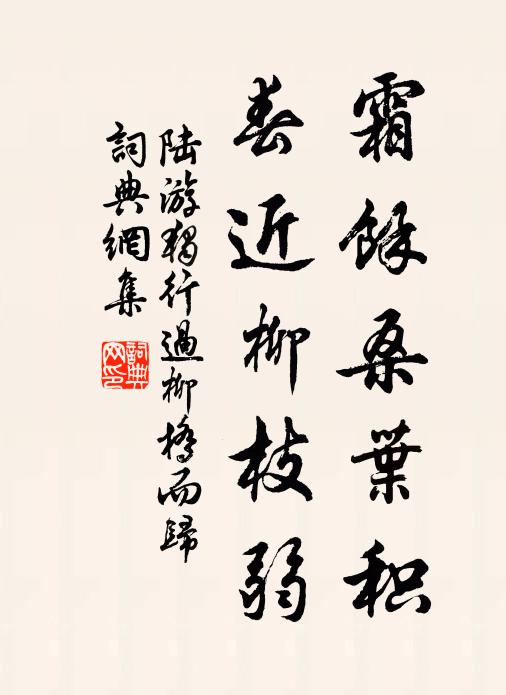 霜餘桑葉积
春近柳枝弱
陆游獨行過柳橋而歸
詞典網集
詞典网印